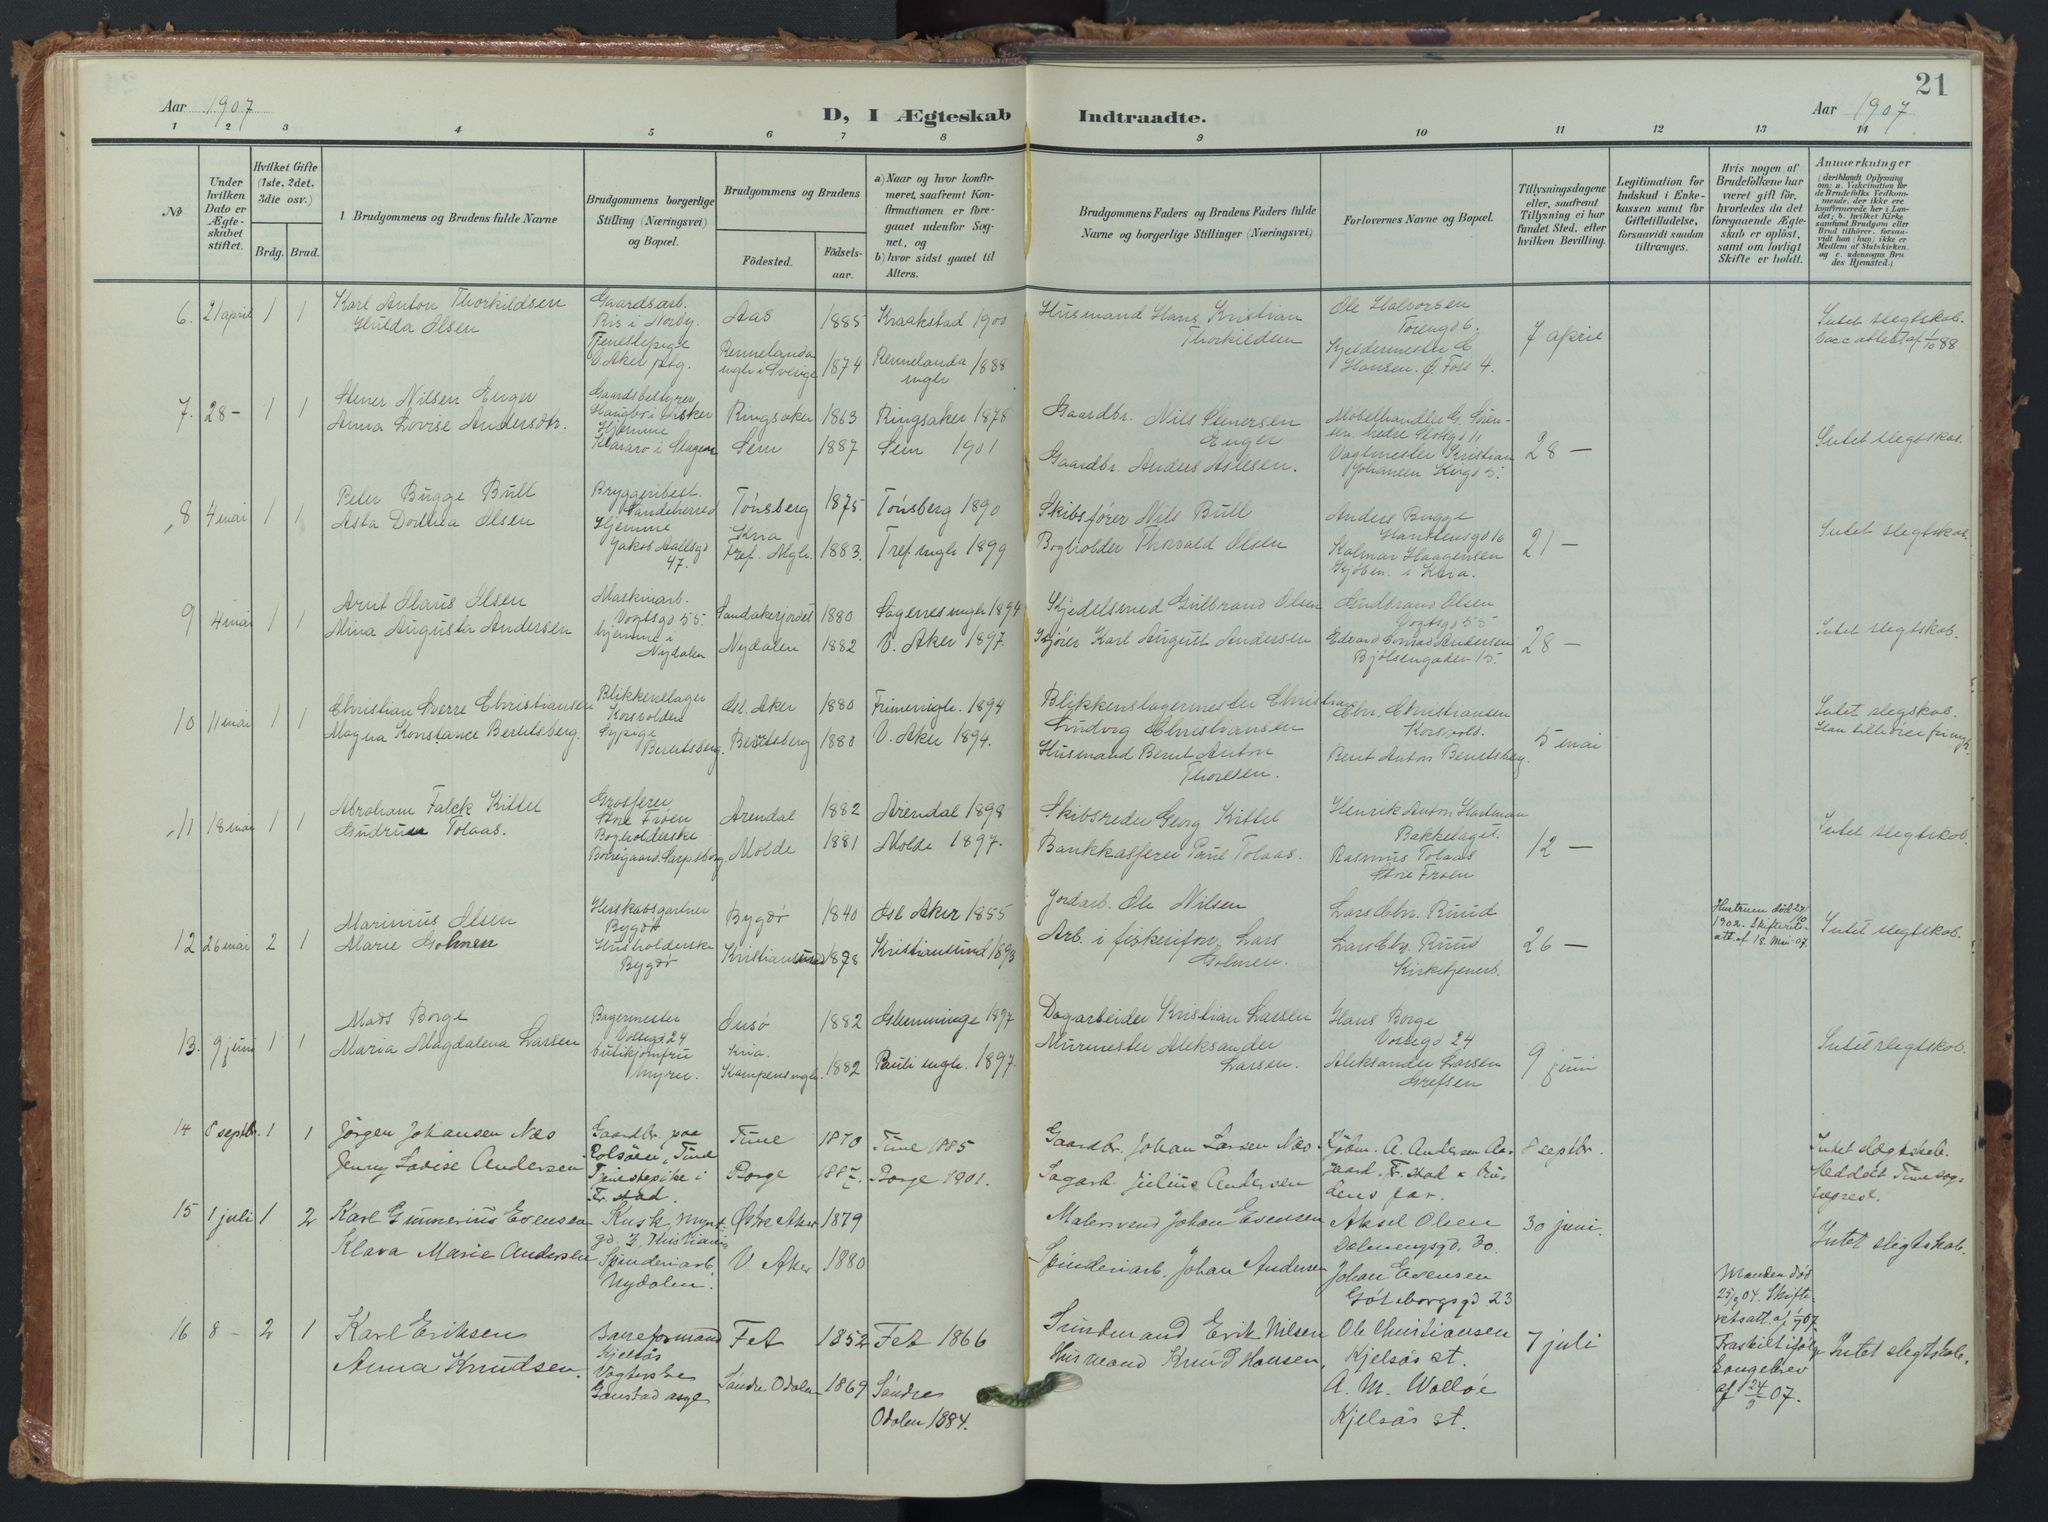 21
Aar 1907
D, I Ægteskab Indtraadte.
Aar 1907
1 2 3 4 5 6 7 8 9 10 11 12 13 14
No
Under hvilken Dato er Ægteskabet stiftet.
Hvilket Gifte (1ste, 2det, 3die osv.)
Brdg. Brud.
Brudgommens og Brudens fulde Navne
Brudgommens borgerlige Stilling (Næringsvei) og Bopæl.
Brudgommens og Brudens
Fødested. Fødselsaar.
a) Naar og hvor konfirmeret, saafremt Konfirmationen er foregaaet udenfor Sognet, og
b) hvor sidst gaaet til Alters.
Brudgommens Faders og Brudens Faders fulde Navne og borgerlige Stillinger (Næringsvei)
Forlovernes Navne og Bopæl.
Tillysningsdagene eller, saafremt Tillysning ei har fundet Sted, efter hvilken Bevilling.
Legitimation for Indskud i Enkekassen samt for Giftetilladelse, forsaavidt saadan tiltrænges.
Hvis nogen af Brudefolkene har været gift før, hvorledes da det foregaaende Ægteskab er opløst, samt om lovligt Skifte er holdt.
Anmærkninger
(deriblandt Oplysning om: a. Vakcination for de Brudefolks Vedkommende, der ikke ere konfirmerede her i Landet; b. hvilket Kirkesamfund Brudgom eller Brud tilhører, forsaavidt han (hun) ikke er Medlem af Statskirken, og c. udensogns Brudes Hjemsted.)
6. 21 april 1 1 Karl Anton Thorkildsen
Hulda Olsen
Gaardsarb.
Ris i Norby.
Tjenestepige
V. Aker
Aas 1885 Kraakstad 1900
Rennelanda
1874 Rennelanda
1888
Husmand Hans Kristian
Thorkildsen
Ole Halvorsen
Hansen. Ø. Foss 4.
7 april
Intet slegtskab.
Vacc attest af 1/10 88
7. 28 - 1 1 Stener Nilsen Enger
Anna Lovise Andersdtr.
Gaardsbestyrer
Hjemme
Ringsaker 1863 Ringsaker 1878
Sem 1887 Sem 1901
Gaardbr. Nils Stenersen
Enger
Gaardbr. Anders Aslesen.
Møbelhandler G. Sørensen.
Vogtmester Kristian
Johansen
28 -
Intet slegtskab.
8 4 mai 1 1 Peter Bugge Bull
Asta Dorthea Olsen
Bryggeribest.
Sandeherred
Hjemme
Jakob Aallsgd
47.
Tønsberg 1875 Tønsberg 1890
Kria
Tref. Mgh. 1883. Tref mgh 1899
Skibsfører Nils Bull
Bogholder Thorvald Olsen
Anders Bugge
Kolmar Haagensen
Kjøbm. i Kria.
21 -
Intet slegtskab.
9 4 mai 1 1 Arnt Hans Olsen
Mina Augusta Andersen
Maskinarb.
Vogtsgd 55.
hjemme i
Nydalen
Sandakerfjordet 1880 Sagenes mgh 1894
Nydalen 1882 V. Aker 1897.
Kjedelsmed Gulbrand Olsen
Kjører Karl August Andersen
Gudbrand Olsen
Vogtsgd 55
Edvard Konrad Andersen
Bjølsengaden 15.
28 -
Intet slegtskab.
10 11 mai 1 1 Christian Sverre Christiansen
Magna Konstance Berntsberg.
Blikkenslager
Korsvolden
Sypige
Berntsberg.
Østl. Aker 1880 Frimenigh. 1894
Berntsberg 1880 V. Aker 1894.
Blikkenslagermester Christian
Ludvig Christiansen
Husmand Bernt Anton
Thoresen.
Chr. Christiansen
Korsvold.
Bernt Anton Berntsberg.
5 mai
Intet slegskab.
Han tilhører frimgh.
11 18 mai 1 1 Abraham Falck Kittel
Gudrun Tolaas.
Grosserer
Store Frøen
Bogholderske
Borregaard Sarpsborg
Arendal 1882 Arendal 1898
Molde 1881 Molde 1897.
Skibsreder Georg Kittel
Bankkasserer Paul Tolaas.
Henrik Anton Hartman
Bakkelaget.
Rasmus Tolaas
Store Frøen
12 -
Intet slegtskab.
12 26 mai 2 1 Marinius Olsen
Marie Golmen
Herskabsgartner
Bygdø
Husholderske
Bygdø
Bygdø 1840 Østl Aker 1855
Kristiansund 1878 Kristiansund 1893
Jordarb. Ole Nilsen
Arb. i fiskeriforr. Lars
Golmen.
Lars Chr. Ruud
Lars Chr. Ruud
Kirketjenerb.
26 -
Hustruen død 24/10
1902. Skifterets-
att. af 18. Mai 07
Intet slegtskab.
13. 9 juni 1 1 Mads Borge
Maria Magdalena Larsen
Bagermester
Vossgd 24
butikjomfru
Myren
Onsø 1882 Glemminge 1897
Kria.
Kampens mgh. 1882 Pauli mgh. 1897.
Dagarbeider Kristian Larsen
Murmester Aleksander
Larsen.
Hans Borge
Vossgd 24
Aleksander Larsen
Grefsen
9 juni
Intet slegtskab.
14 8 septbr. 1 1 Jørgen Johansen Næs
Jenny Lovise Andersen
Gaardbr. paa
Rolsøen, Tune
Tjenestepike i
Fr.stad.
Tune 1870 Tune 1885
Borge 1887. Borge 1901.
Gaardbr. Johan Larsen Næs
Sagarb. Julius Andersen
Kjøbm. A. Andersen Aagaard. Fr.stad & Brudens far.
8 septbr.
Intet slegtskab.
Meddelt Tune sogneprest.
15 1 juli 1 2 Karl Gunnerius Evensen
Klara Marie Andersen
Kusk, Myntgd. 3, Kristiania
Spinderiarb.
Nydalen.
Østre Aker 1879
V. Aker 1880
Malersvend Johan Evensen
Spinderiarb. Johan Andersen
Aksel Olsen
Dælenengsgd. 30.
Johan Evensen
Gøteborgsgd 23
30 juni.
Intet slegtskab.
Manden død
25/9 04. Skifteretsatt. af 07.
16 8 - 2 1 Karl Eriksen
Anna Knudsen.
Barreformand
Kjelsås
Vogterske
Gaustad asyl
Fet 1852 Fet 1866
Søndre Odalen 1869 Søndre
Odalen 1884.
Husmand Knud Hansen.
Erik Nilsen
Ole Christiansen
Kjelsås st.
A. M. Walløe
Kjelsås st.
7 juli
Fraskilt ifølge
af 24/5 07.
Intet slegtskab.